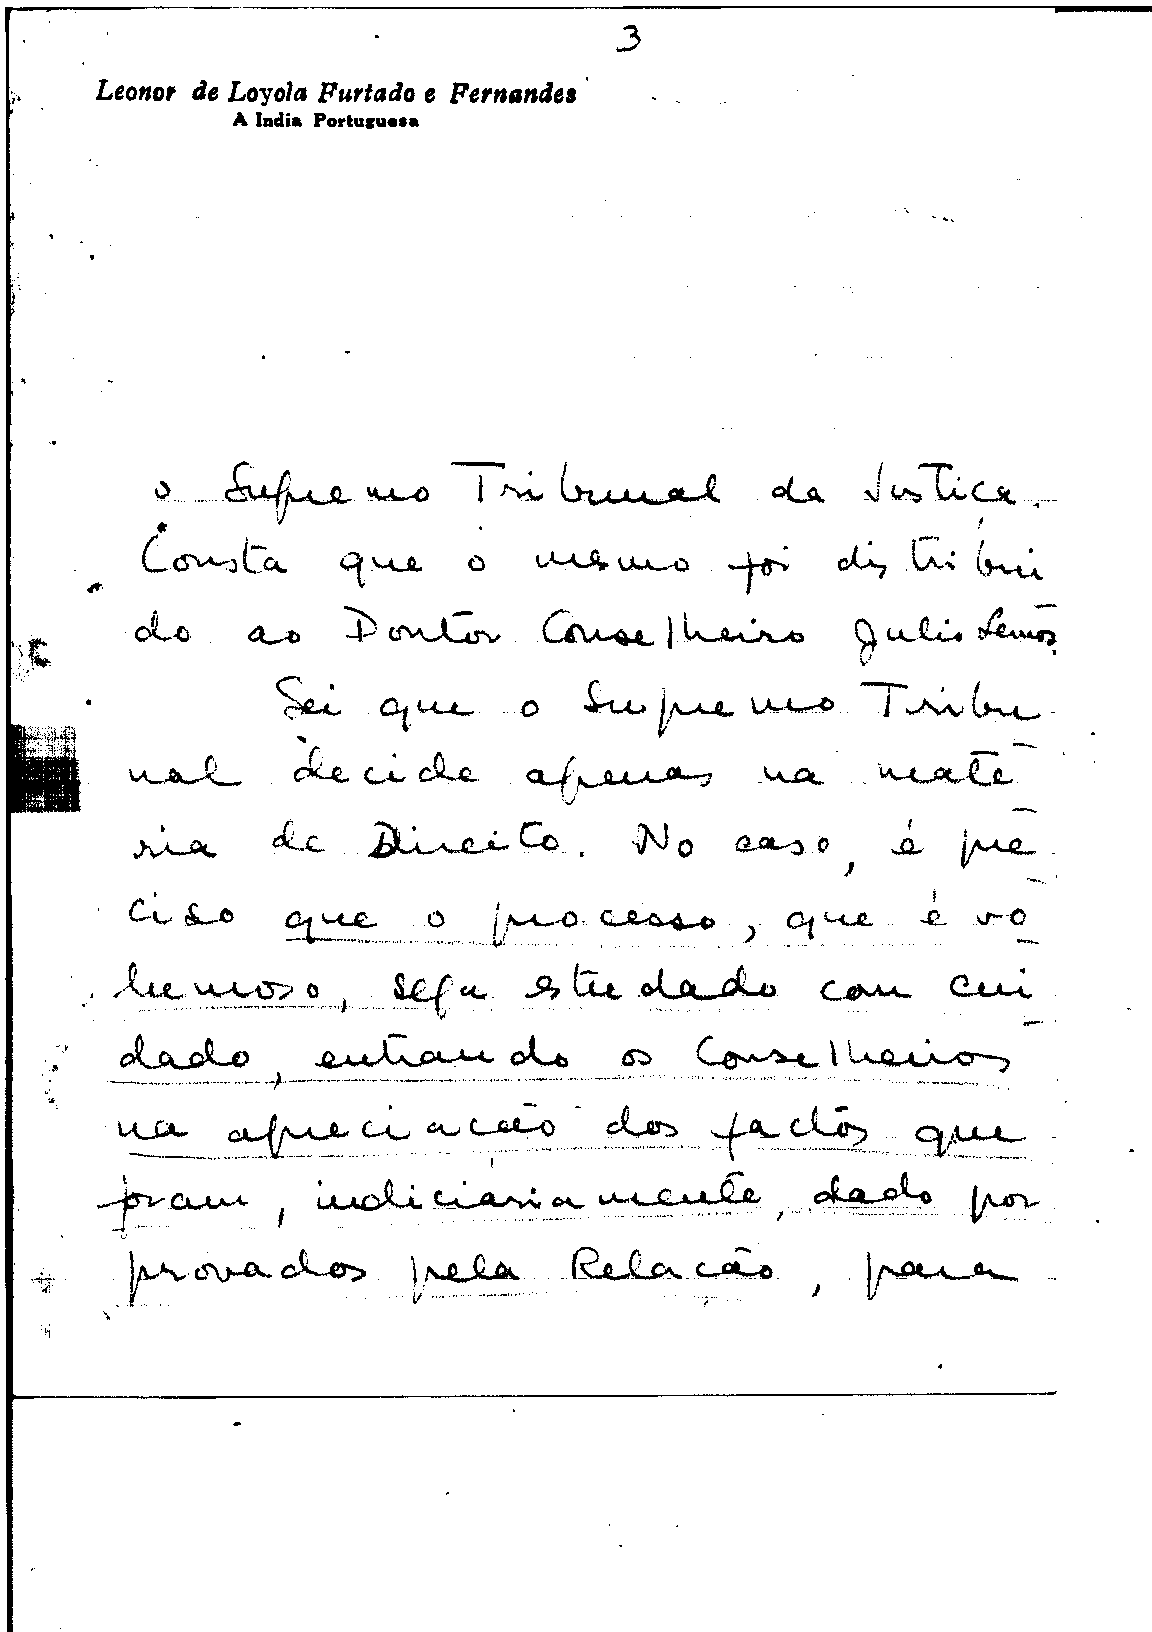 3
Leonor de Loyola Furtado e Fernandes
A India Portuguesa
o Supremo Tribunal da Justica.
Consta que o mesmo foi distribui
do ao Doutor Conselheiro Julio Lemos.
Sei que o Supremo Tribu
nal decide apenas na maté
ria de Direito. No caso, é pre
ciso que o processo, que é vo
lumoso, seja estudado com cui
dado, entrando os Conselheiros
na apreciacão dos factos que
foram, indiciáriamente, dado por
provados pela Relacão, para